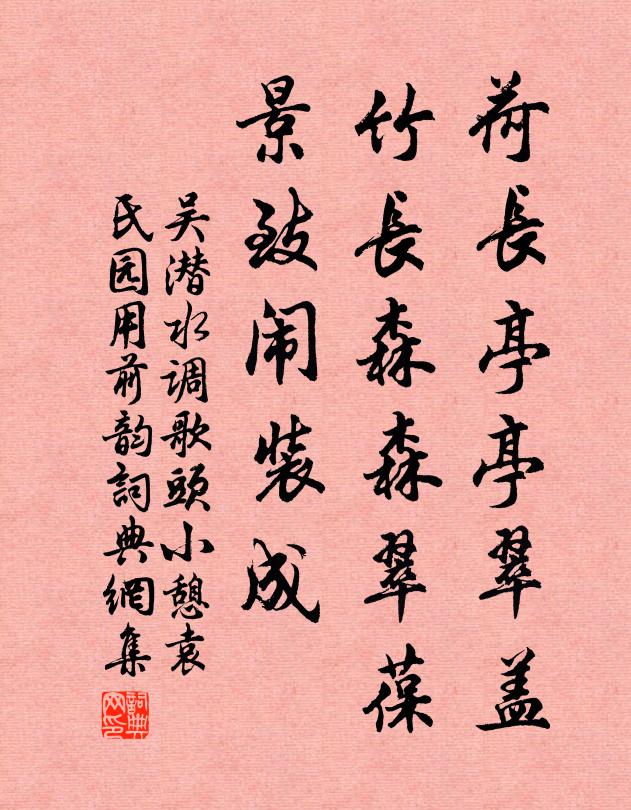 荷長亭亭翠盖
竹長森森翠葆
景致闹装成
吴潜水调歌頭小憩袁
氏园用前韵詞典網集
詞典
网印